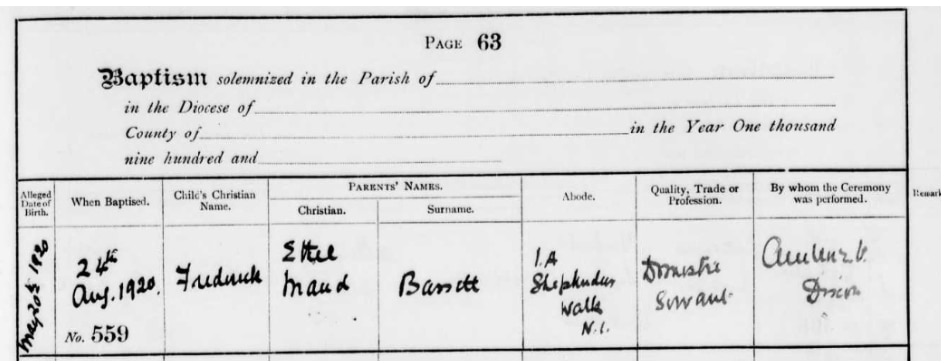 PAGE 63
Baptism solemnized in the Parish of
in the Diocese of
County of in the Year One thousand
nine hundred and
Alleged Date of Birth. When Baptised. Child's Christian Name. PARENTS' NAMES. Christian. Surname. Abode. Quality, Trade or Profession. By whom the Ceremony was performed. Remark
May 20th 1920
24th Aug. 1920.
No. 559
Frederick
Ethel
Maud
Bassett
1.A
Walk
N.1.
Domestic
Servant
Dixon